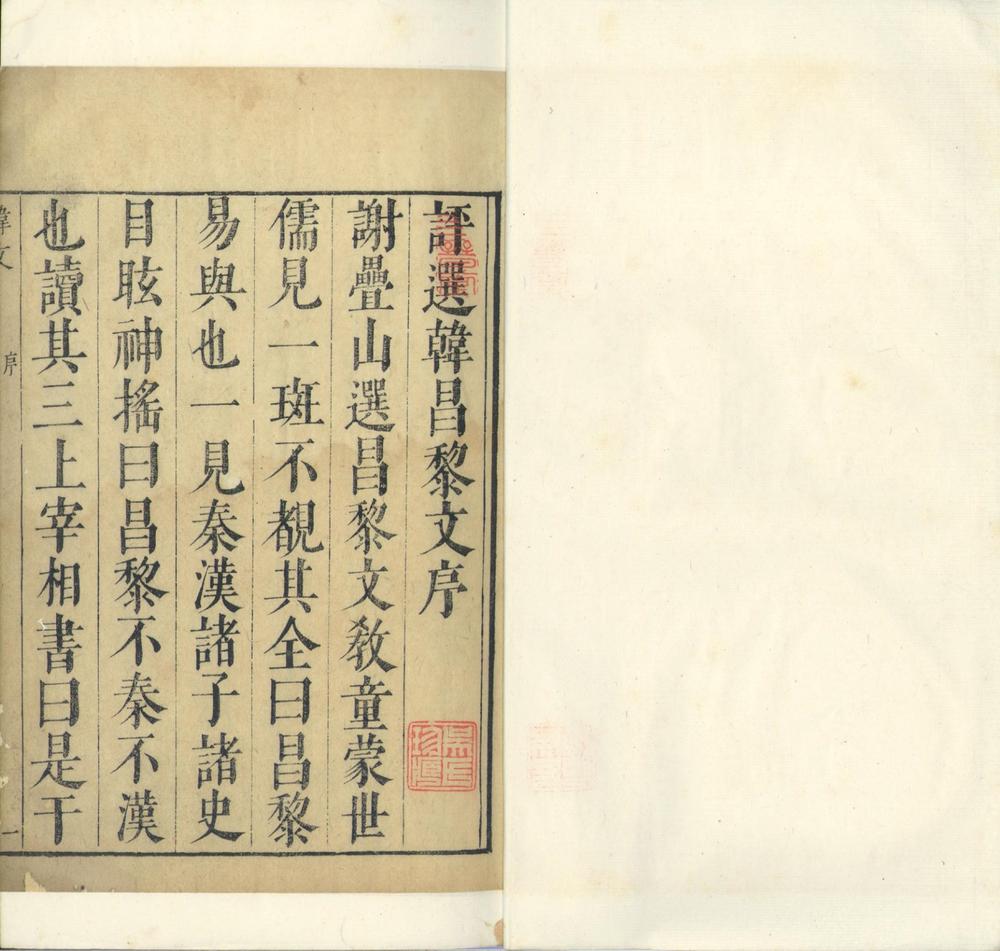 評選韓昌黎文序
謝疊山選昌黎文敎童蒙世
儒見一斑不覩其全曰昌黎
易與也一見秦漢諸子諸史
目眩神搖曰昌黎不秦不漢
也讀其三上宰相書曰是干
韓文 序 一